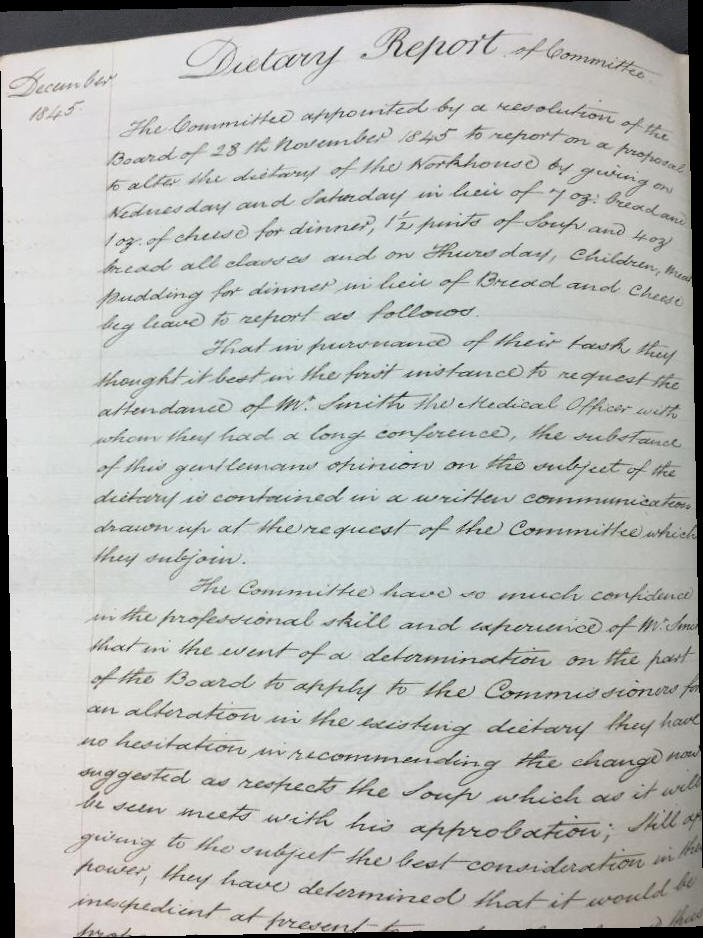 Dietary Report of Committee.
December
1845.
The Committee appointed by a resolution of the
Board of 28th November 1845 to report on a proposal
to alter the dietary of the Workhouse by giving on
Wednesday and Saturday in lieu of 7 oz: bread and
1 oz. of cheese for dinner, 1½ pints of Soup and 4 oz
bread all classes and on Thursday, Children, meat
pudding for dinner in lieu of Bread and Cheese
beg leave to report as follows.
That in pursuance of their task they
thought it best in the first instance to request the
attendance of Mr. Smith the Medical Officer with
whom they had a long conference, the substance
of this gentlemans opinion on the subject of the
dietary is contained in a written communication
drawn up at the request of the Committee which
they subjoin.
The Committee have so much confidence
in the professional skill and experience of Mr. Smi
that in the event of a determination on the part
of the Board to apply to the Commissioners for
an alteration in the existing dietary they have
no hesitation in recommending the change now
suggested as respects the Soup which as it will
be seen meets with his approbation; Still af
giving to the subject the best consideration in the
power, they have determined that it would be
inexpedient at present to